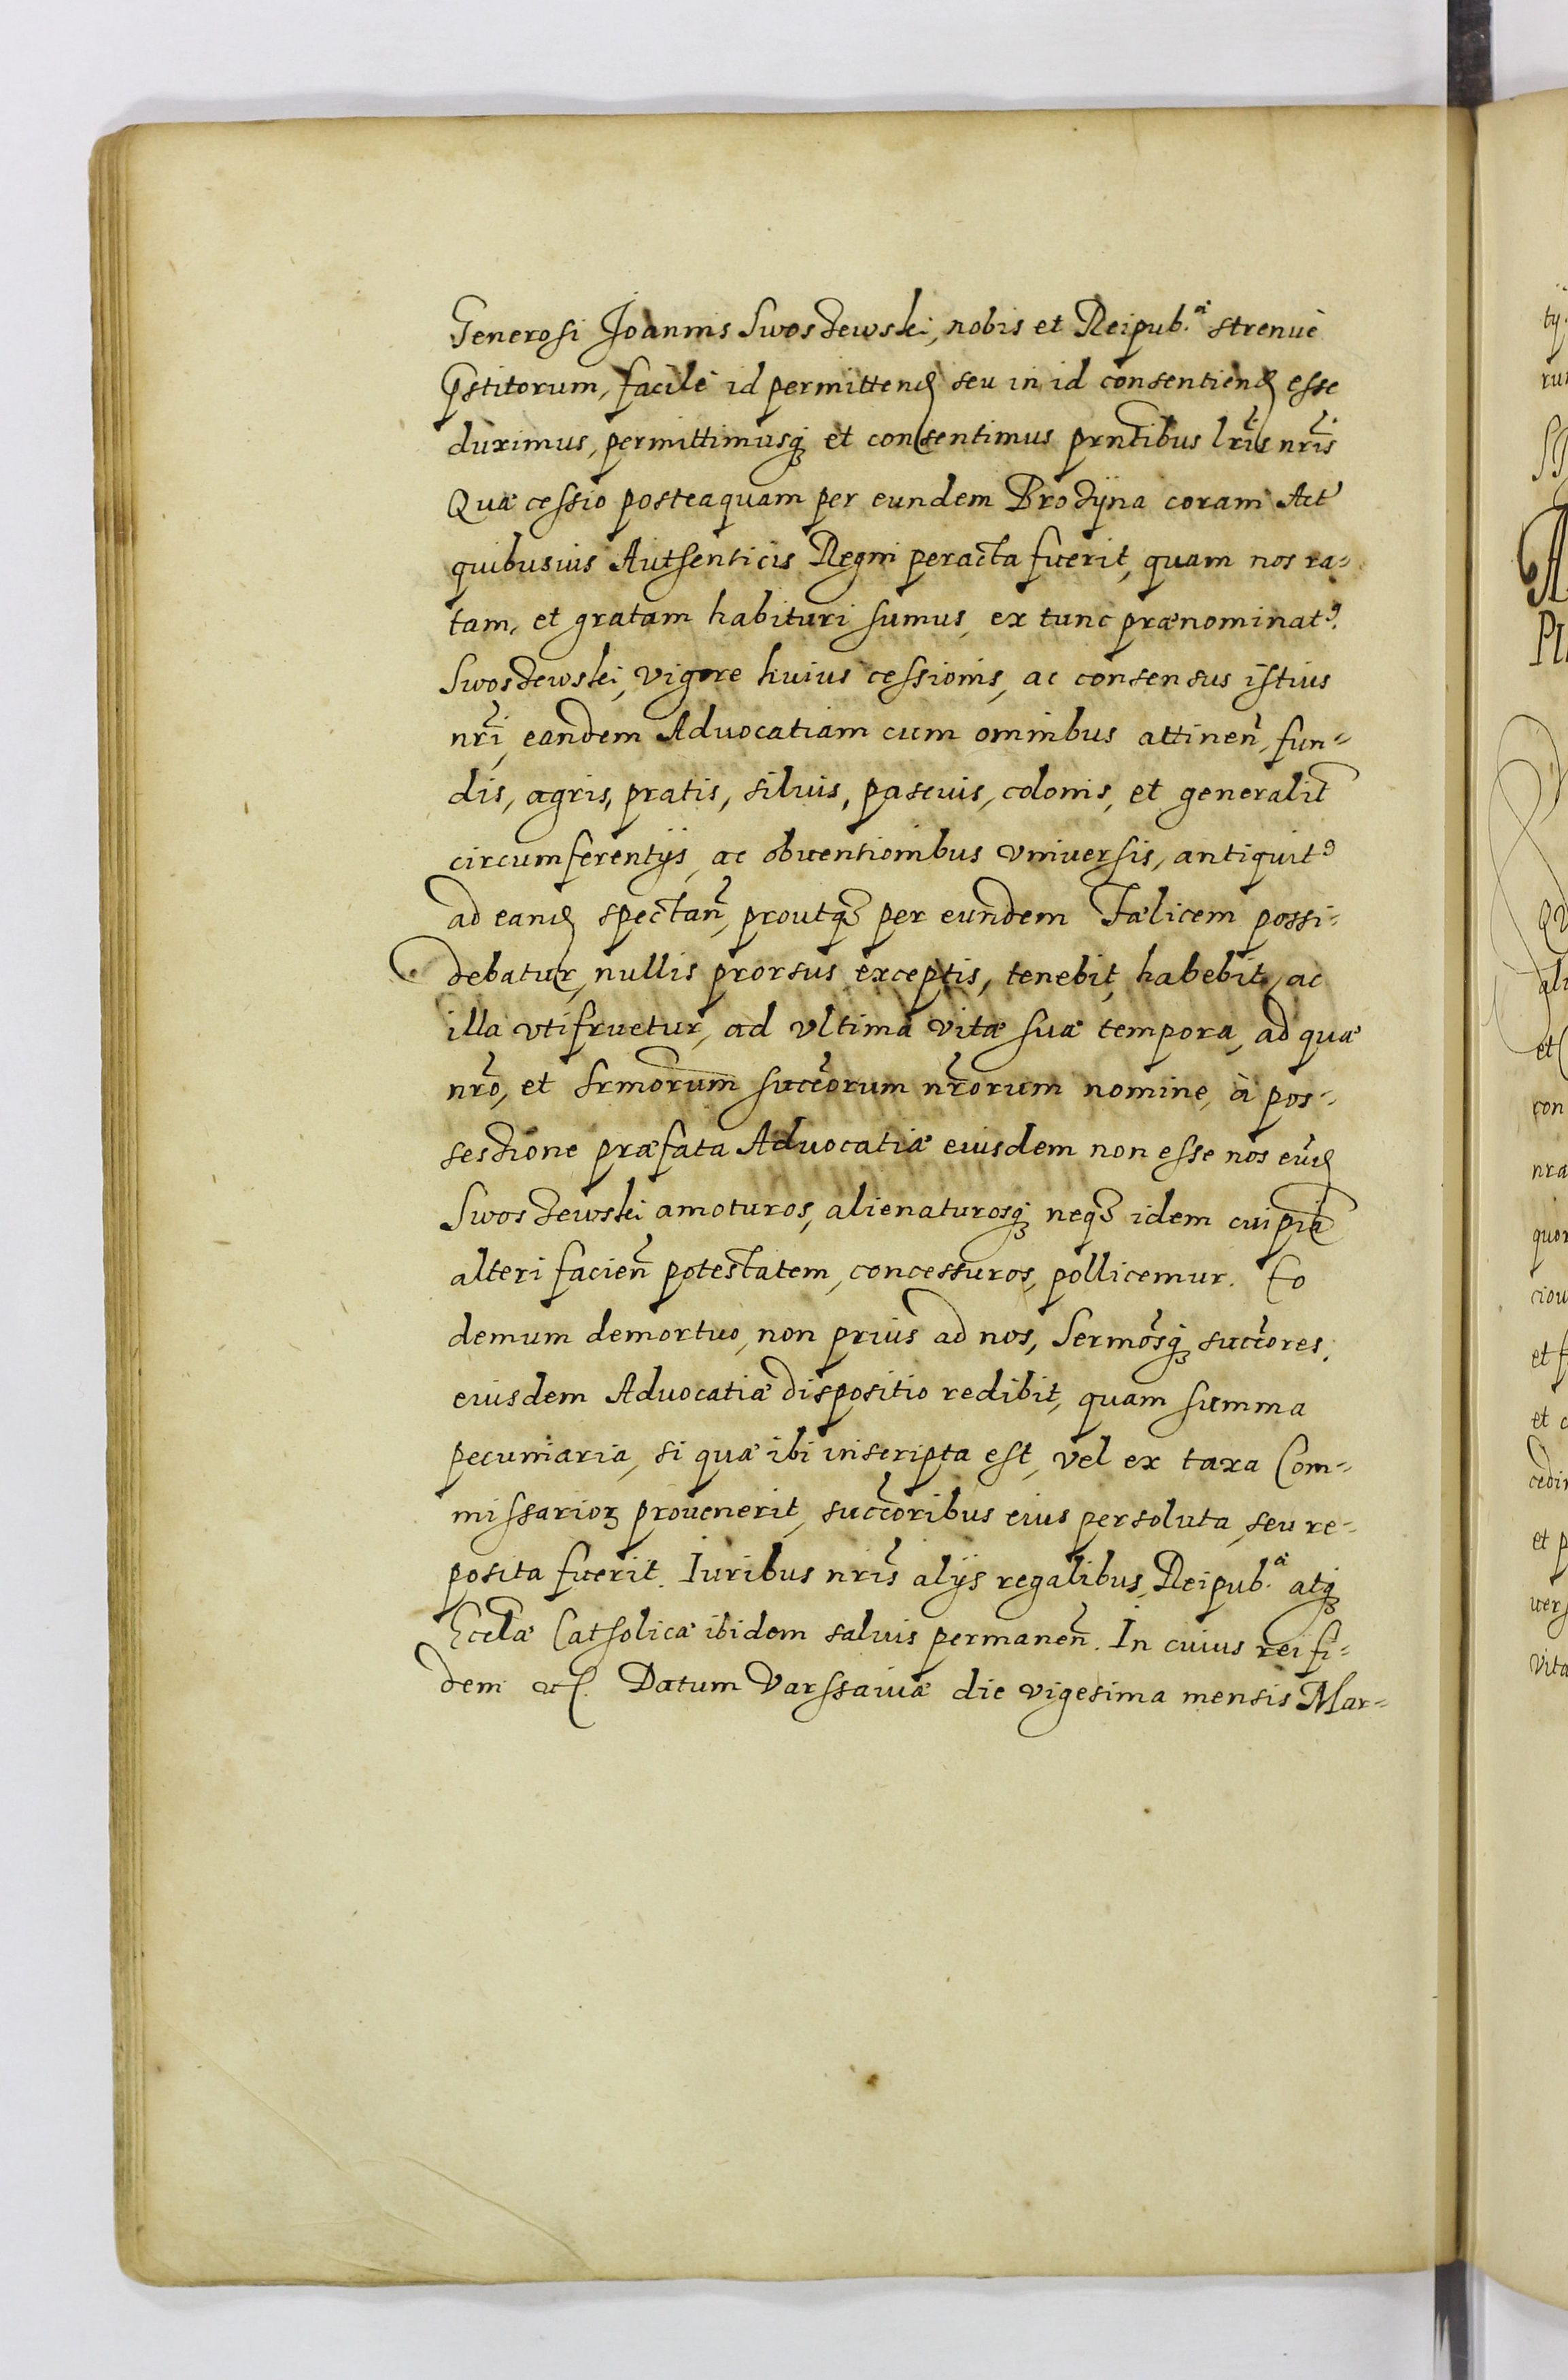 Generosi Joannis Swosʒewski, nobis et Reipub.ᵃᵉ strenuè
Pstitorum, facilè id permittenꝺ seu in id consentienꝺ esse
duximus, permittimusq̃ et consentimus prntibus lris nris
Quæ cessio posteaquam per eundem Broʒyna coram Act
quibusuis Authenticis Regni peracta fuerit, quam nos ra=
tam, et gratam habituri sumus, ex tunc prænominatꝰ.
Swosʒewski, vigore huius cessionis, ac consensus istius
nri, eandem Aduocatiam cum omnibus attinen̄, fun=
dis, agris, pratis, siluis, pascuis, colonis, et generalit̄
circumferentijs, ac obuentionibus vniuersis, antiquitꝰ
ad eanꝺ spectan̄, proutq̃ per eundem Fælicem possi=
debatur, nullis prorsus exceptis, tenebit, habebit, ac
illa vtifruetur, ad vltima vitæ suæ tempora, ad quæ
nro, et Srmorum succorum nrorum nomine, à pos=
sessione præfata Aduocatiæ eiusdem non esse nos eunꝺ
Swosʒewski amoturos, alienaturosq̃ neq̃ idem cuipiā
alteri facien̄ potestatem, concessuros, pollicemur. Eo
demum demortuo, non prius ad nos, Sermosq̃ succores,
eiusdem Aduocatiæ dispositio redibit, quam summa
pecuniaria, si quæ ibi inscripta est, vel ex taxa Com=
missarioꝝ prouenerit, succoribus eius persoluta, seu re=
posita fuerit. Iuribus nris alijs regalibus, Reipub.ᵃᵉ atq̃
Ecclæ Catholicæ ibidem saluis permanen̄. In cuius rei fi=
dem etc. Datum Varssauiæ die vigesima mensis Mar=